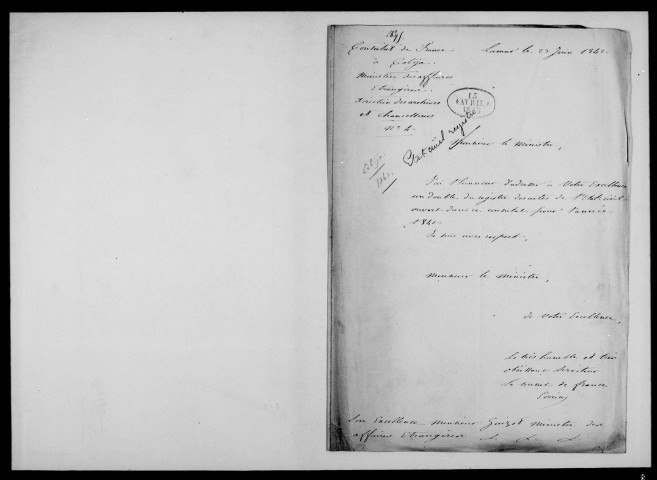 Consulat de France
à Cobija
Ministère des affaires
étrangères
direction des archives
et chancelleries
N° 4
Lamar le 23 Juin 1842
15 AVRIL
Etat civil registre
Cobija
1841
Monsieur le Ministre,
J'ai l'honneur d'adresser à Votre Excellence
un double du registre des actes de l'Etat civil
ouvert dans ce consulat pour l'année
1841
Je suis avec respect,
Monsieur le Ministre,
de Votre Excellence,
Le très humble et très
obéissant serviteur
Le consul de france
Son Excellence Monsieur Guizot Ministre des
affaires Etrangères